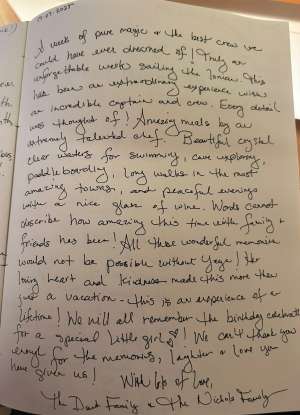 A week of pure magic & the best crew we
could have ever dreamed of! Truly an
unforgettable week sailing the Ionian. This
has been an extraordinary experience with
an incredible captain and crew. Every detail
was thought of! Amazing meals by an
extremely talented chef. Beautiful crystal
clear waters for swimming, cave exploring,
paddleboarding, long walks in the most
amazing towns, and peaceful evenings
with a nice glass of wine. Words cannot
describe how amazing this time with family &
friends has been! All these wonderful memories
would not be possible without! Her
loving heart and kindness made this more than
just a vacation - this is an experience of a
lifetime! We will all remember the birthday celebration
for a special little girl! We can't thank you
enough for the memories, laughter & love you
have given us!
With lots of love,
The Family & the Nichols Family